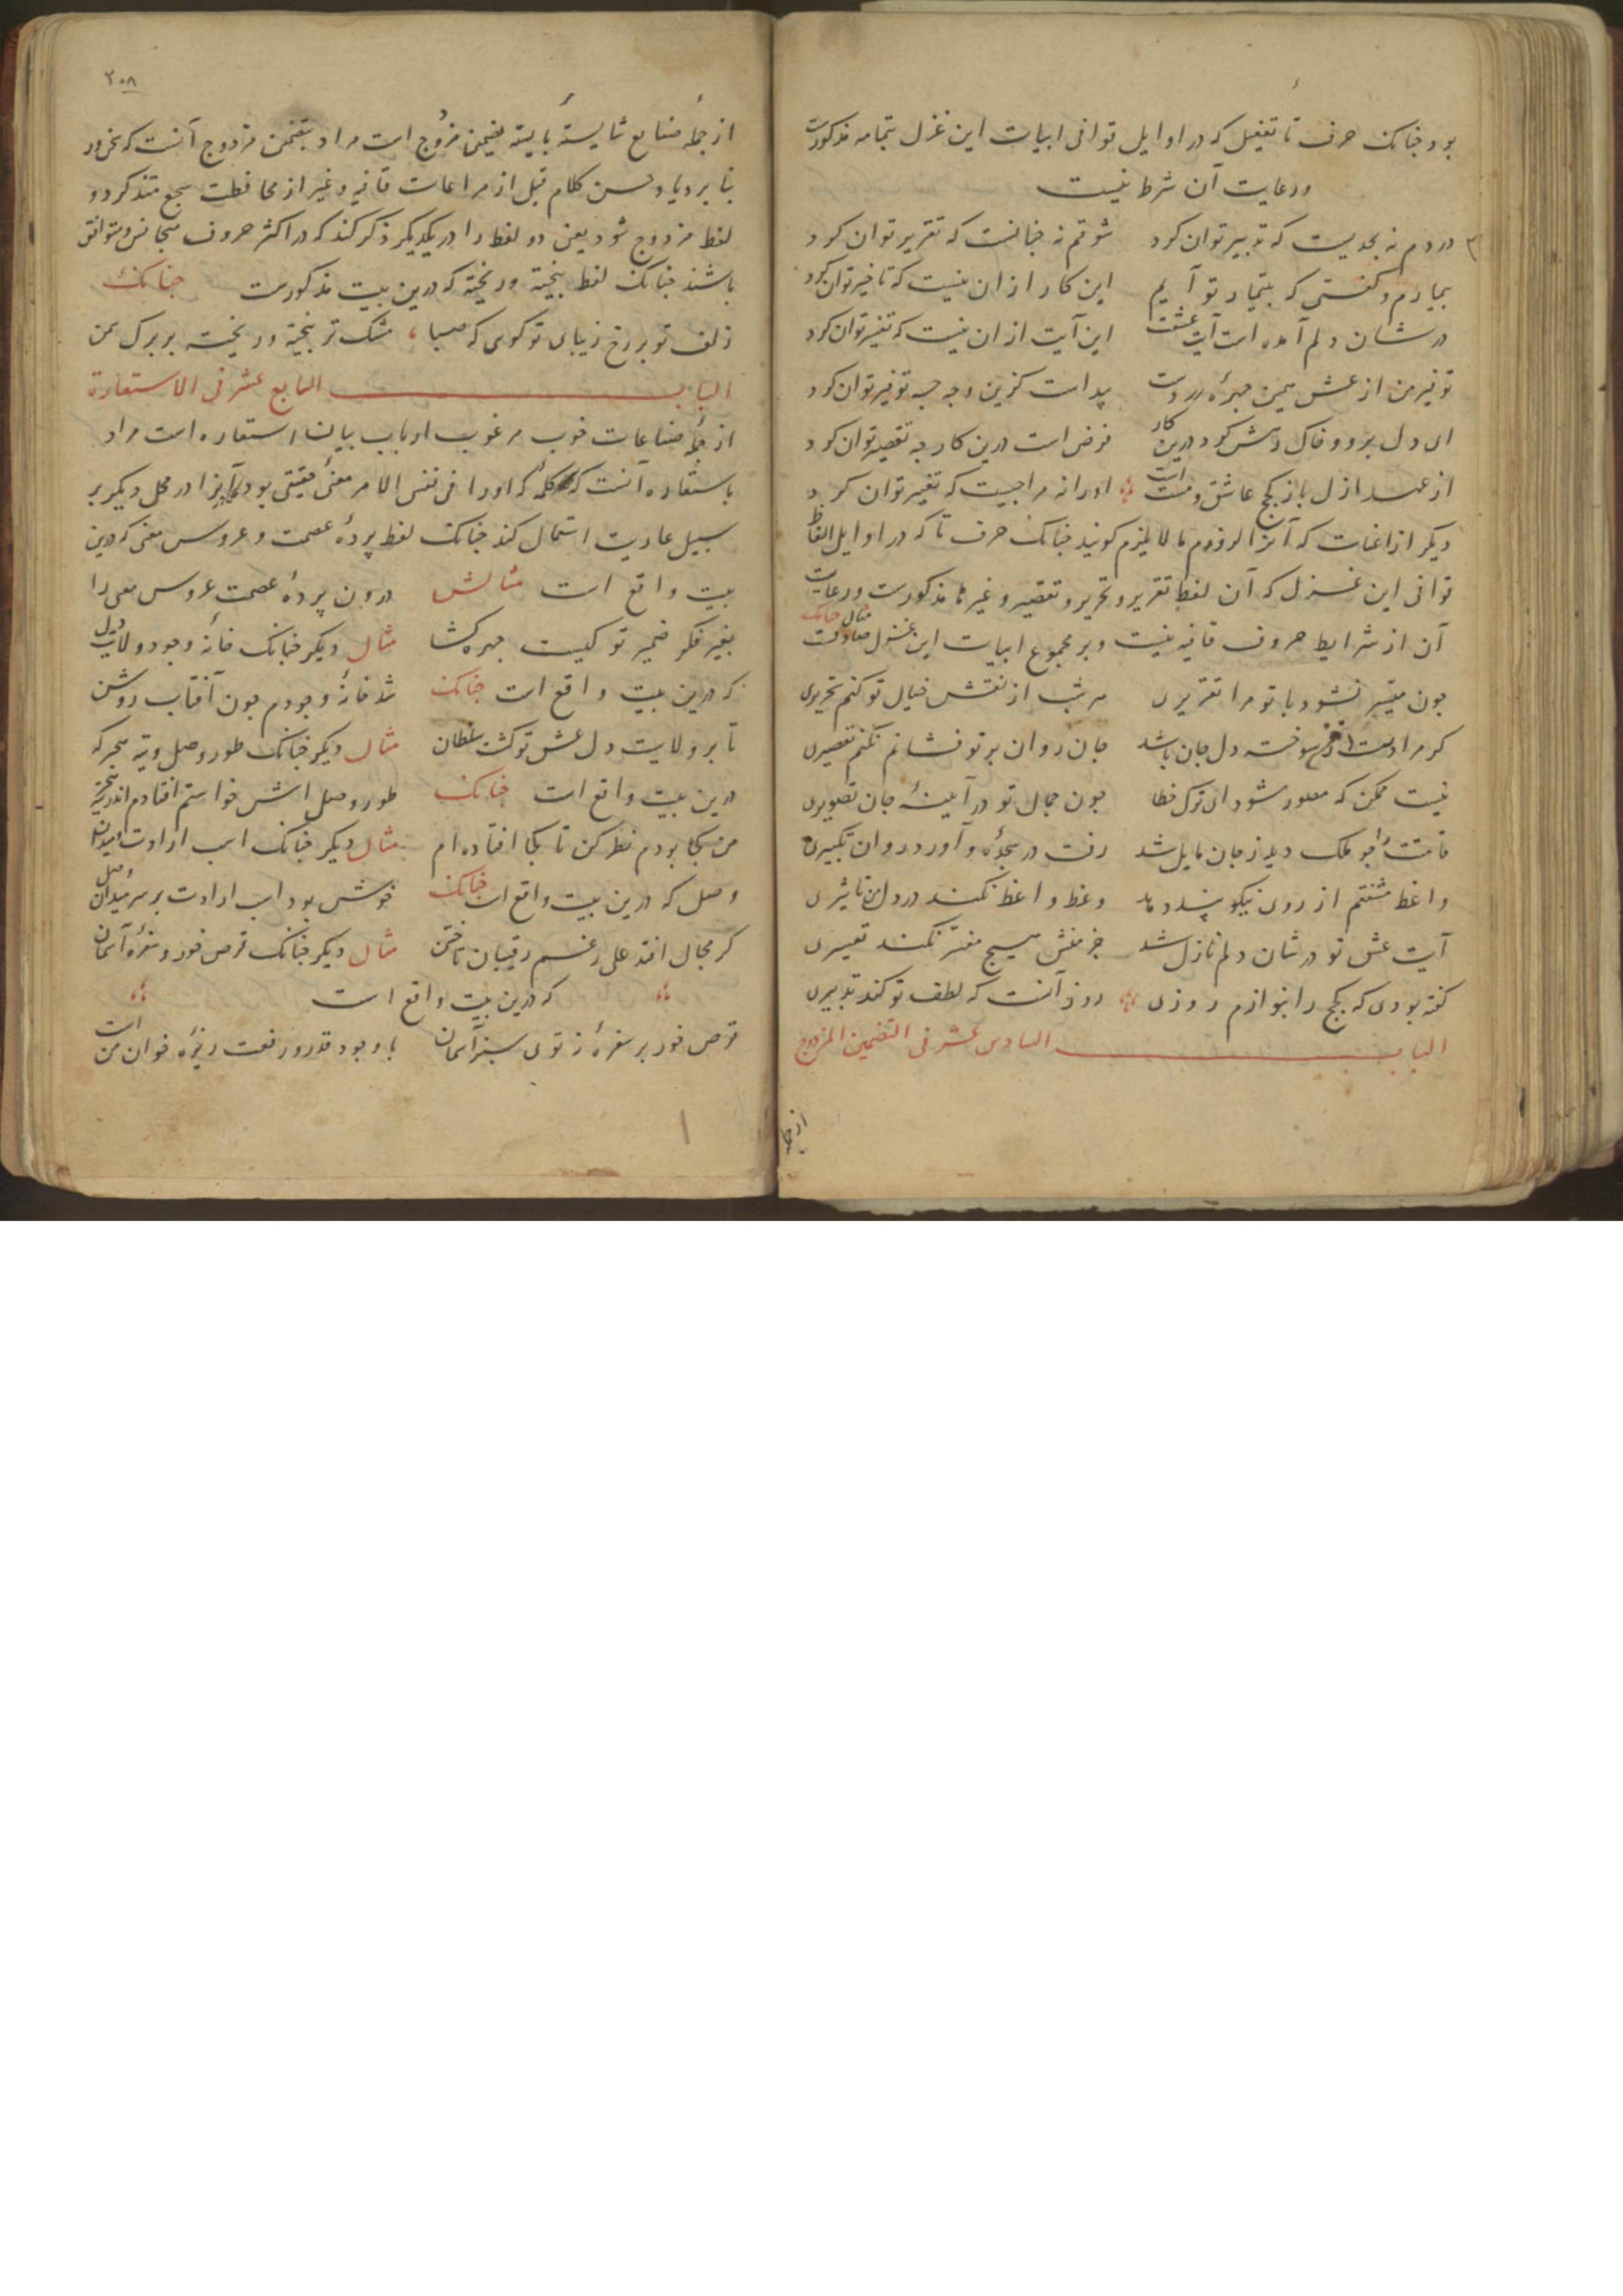 بود چنانک حرف تا تفعیل که در اوایل قوافی ابیات این غزل بتمامه مذکورست
ورعایت آن شرط نیست
دردم نه بحدیست که تدبیر توان کرد شوقم نه چنانست که تقریر توان کرد
بیمارم و گفتی که بتیمار تو آیم این کار ازان نیست که تاخیر توان کرد
در شان دلم آمده است آیت عشقت این آیت ازان نیست که تفسیر توان کرد
توفیر من از عشق همین چهره زردست پیداست کزین وجه چه توفیر توان کرد
ای دل برو و خاک رهش گرد درین کار فرض است درین کار چه تقصیر توان کرد
از عهد ازل باز کجج عاشق و مست است اورا نه مزاجیست که تغییر توان کرد
دیگر از اغنات که آنرا لزوم ما لا یلزم گویند چنانک حرف تا که در اوایل الفاظ
قوافی این غزل که آن لفظ تقریر و تحریر و تقصیر و غیرها مذکورست ورعایت
آن از شرایط حروف قافیه نیست وبر مجموع ابیات این غزل صادقست مثال چنانک
چون میسر نشود با تو مرا تقریری هر شب از نقش خیال تو کنم تحریری
گر مرا دست دهد سوخته دل جان باشد جان روان بر تو فشانم نکنم تقصیری
نیست ممکن که مصور شود ای ترک خطا چون جمال تو در آیینه جان تصویری
قامتت را چو ملک دید ز جان مایل شد رفت در سجده و آورد روان تکبیری
واعظ مشفقم از روی نیکو پند دهد وعظ واعظ نکند در دل من تاثیری
آیت عشق تو در شان دلم نازل شد جز غمش هیچ مفسر نکند تفسیری
گفته بودی که کجج را بنوازم روزی روز آنست که لطف تو کند تدبیری
الباب السادس عشر فی التضمین المزدوج
از جمله
۲۰۸
از جمله صنایع شایسته بایسته تضمین مزدوج است مراد بتضمین مزدوج آنست که سخن ور
بنا بر ازدیاد حسن کلام قبل از مراعات قافیه وغیر از محافظت سجع متذکر دو
لفظ مزدوج شود یعنی دو لفظ را در یکدیگر ذکر کند که در اکثر حروف متجانس و متوافق
باشند چنانک لفظ بیخته و ریخته که درین بیت مذکورست چنانک
زلف تو بر رخ زیبای تو گوی که صبا مشک تر بیخته و ریخته بر برگ سمن
الباب السابع عشر فی الاستعارة
از جمله صناعات خوب مرغوب ارباب بیان استعاره است مراد
باستعاره آنست که کلمهٔ که اورا فی نفس الامر معنی حقیقی بود آنرا در محل دیگر بر
سبیل عاریت استعمال کند چنانک لفظ پردهٔ عصمت و عروس معنی که درین
بیت واقع است مثالش درون پردهٔ عصمت عروس معنی را
بغیر فکر ضمیر تو کیست چهره گشا مثال دیگر چنانک خانهٔ وجود و ولایت دل
که درین بیت واقع است چنانک شد خانهٔ وجودم چون آفتاب روشن
تا بر ولایت دل عشق تو گشت سلطان مثال دیگر چنانک طور وصل و تیه هجر که
درین بیت واقع است چنانک طور وصل اش خواستم افتادم اندر تیه هجر
من کجا بودم نظر کن تا کجا افتاده ام مثال دیگر چنانک اسب ارادت و میدان
وصل که درین بیت واقع است چنانک خوش بود اسب ارادت بر سر میدان وصل
گر مجال افتد علی رغم رقیبان تاختن مثال دیگر چنانک قرص خور و سفره آسمان
که درین بیت واقع است
قرص خور بر سفرهٔ نه توی سبز آسمان با وجود قدر و رفعت ریزهٔ خوان من است